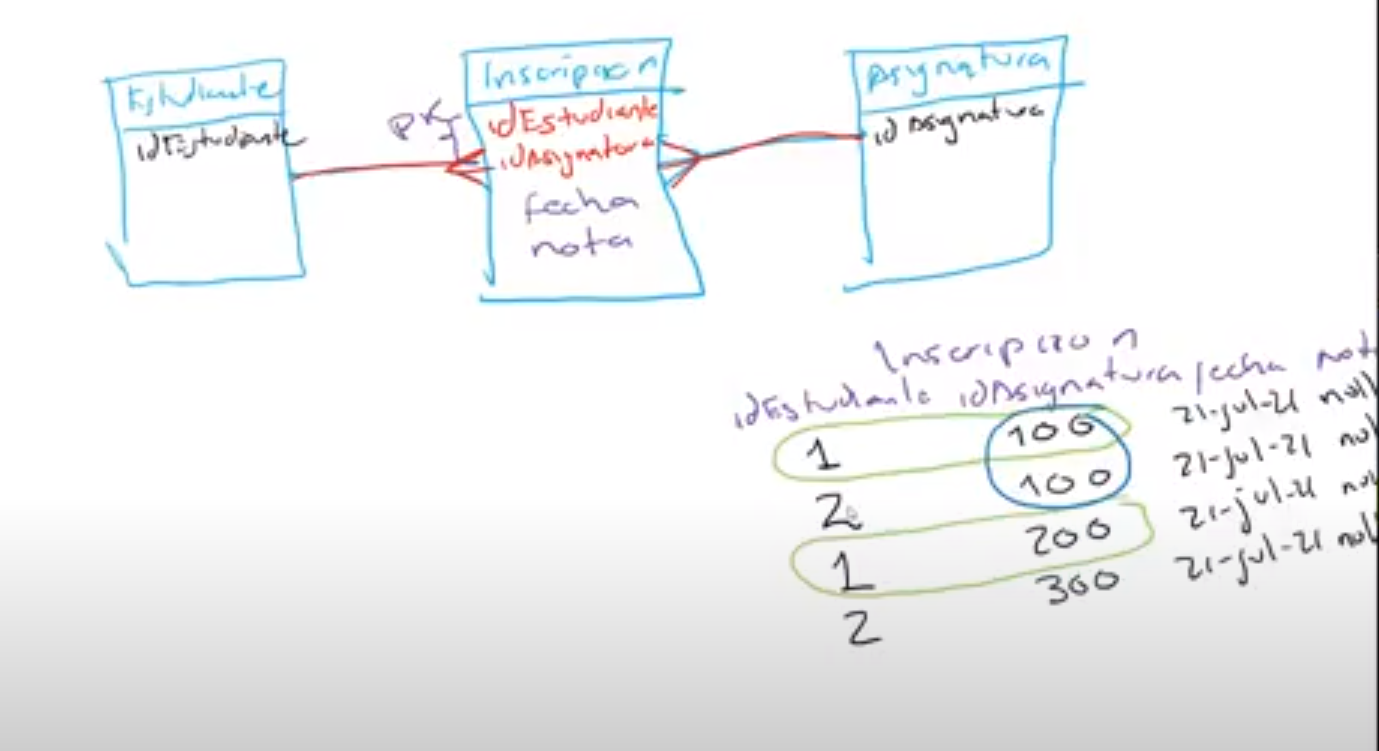 Estudiante
idEstudiante
PK
Inscripcion
idEstudiante
idAsignatura
fecha
nota
Asignatura
idAsignatura
Inscripcion
idEstudiante idAsignatura fecha not
1 100 21-jul-21 null
2 100 21-jul-21 nul
1 200 21-jul-21 nul
2 300 21-jul-21 nul